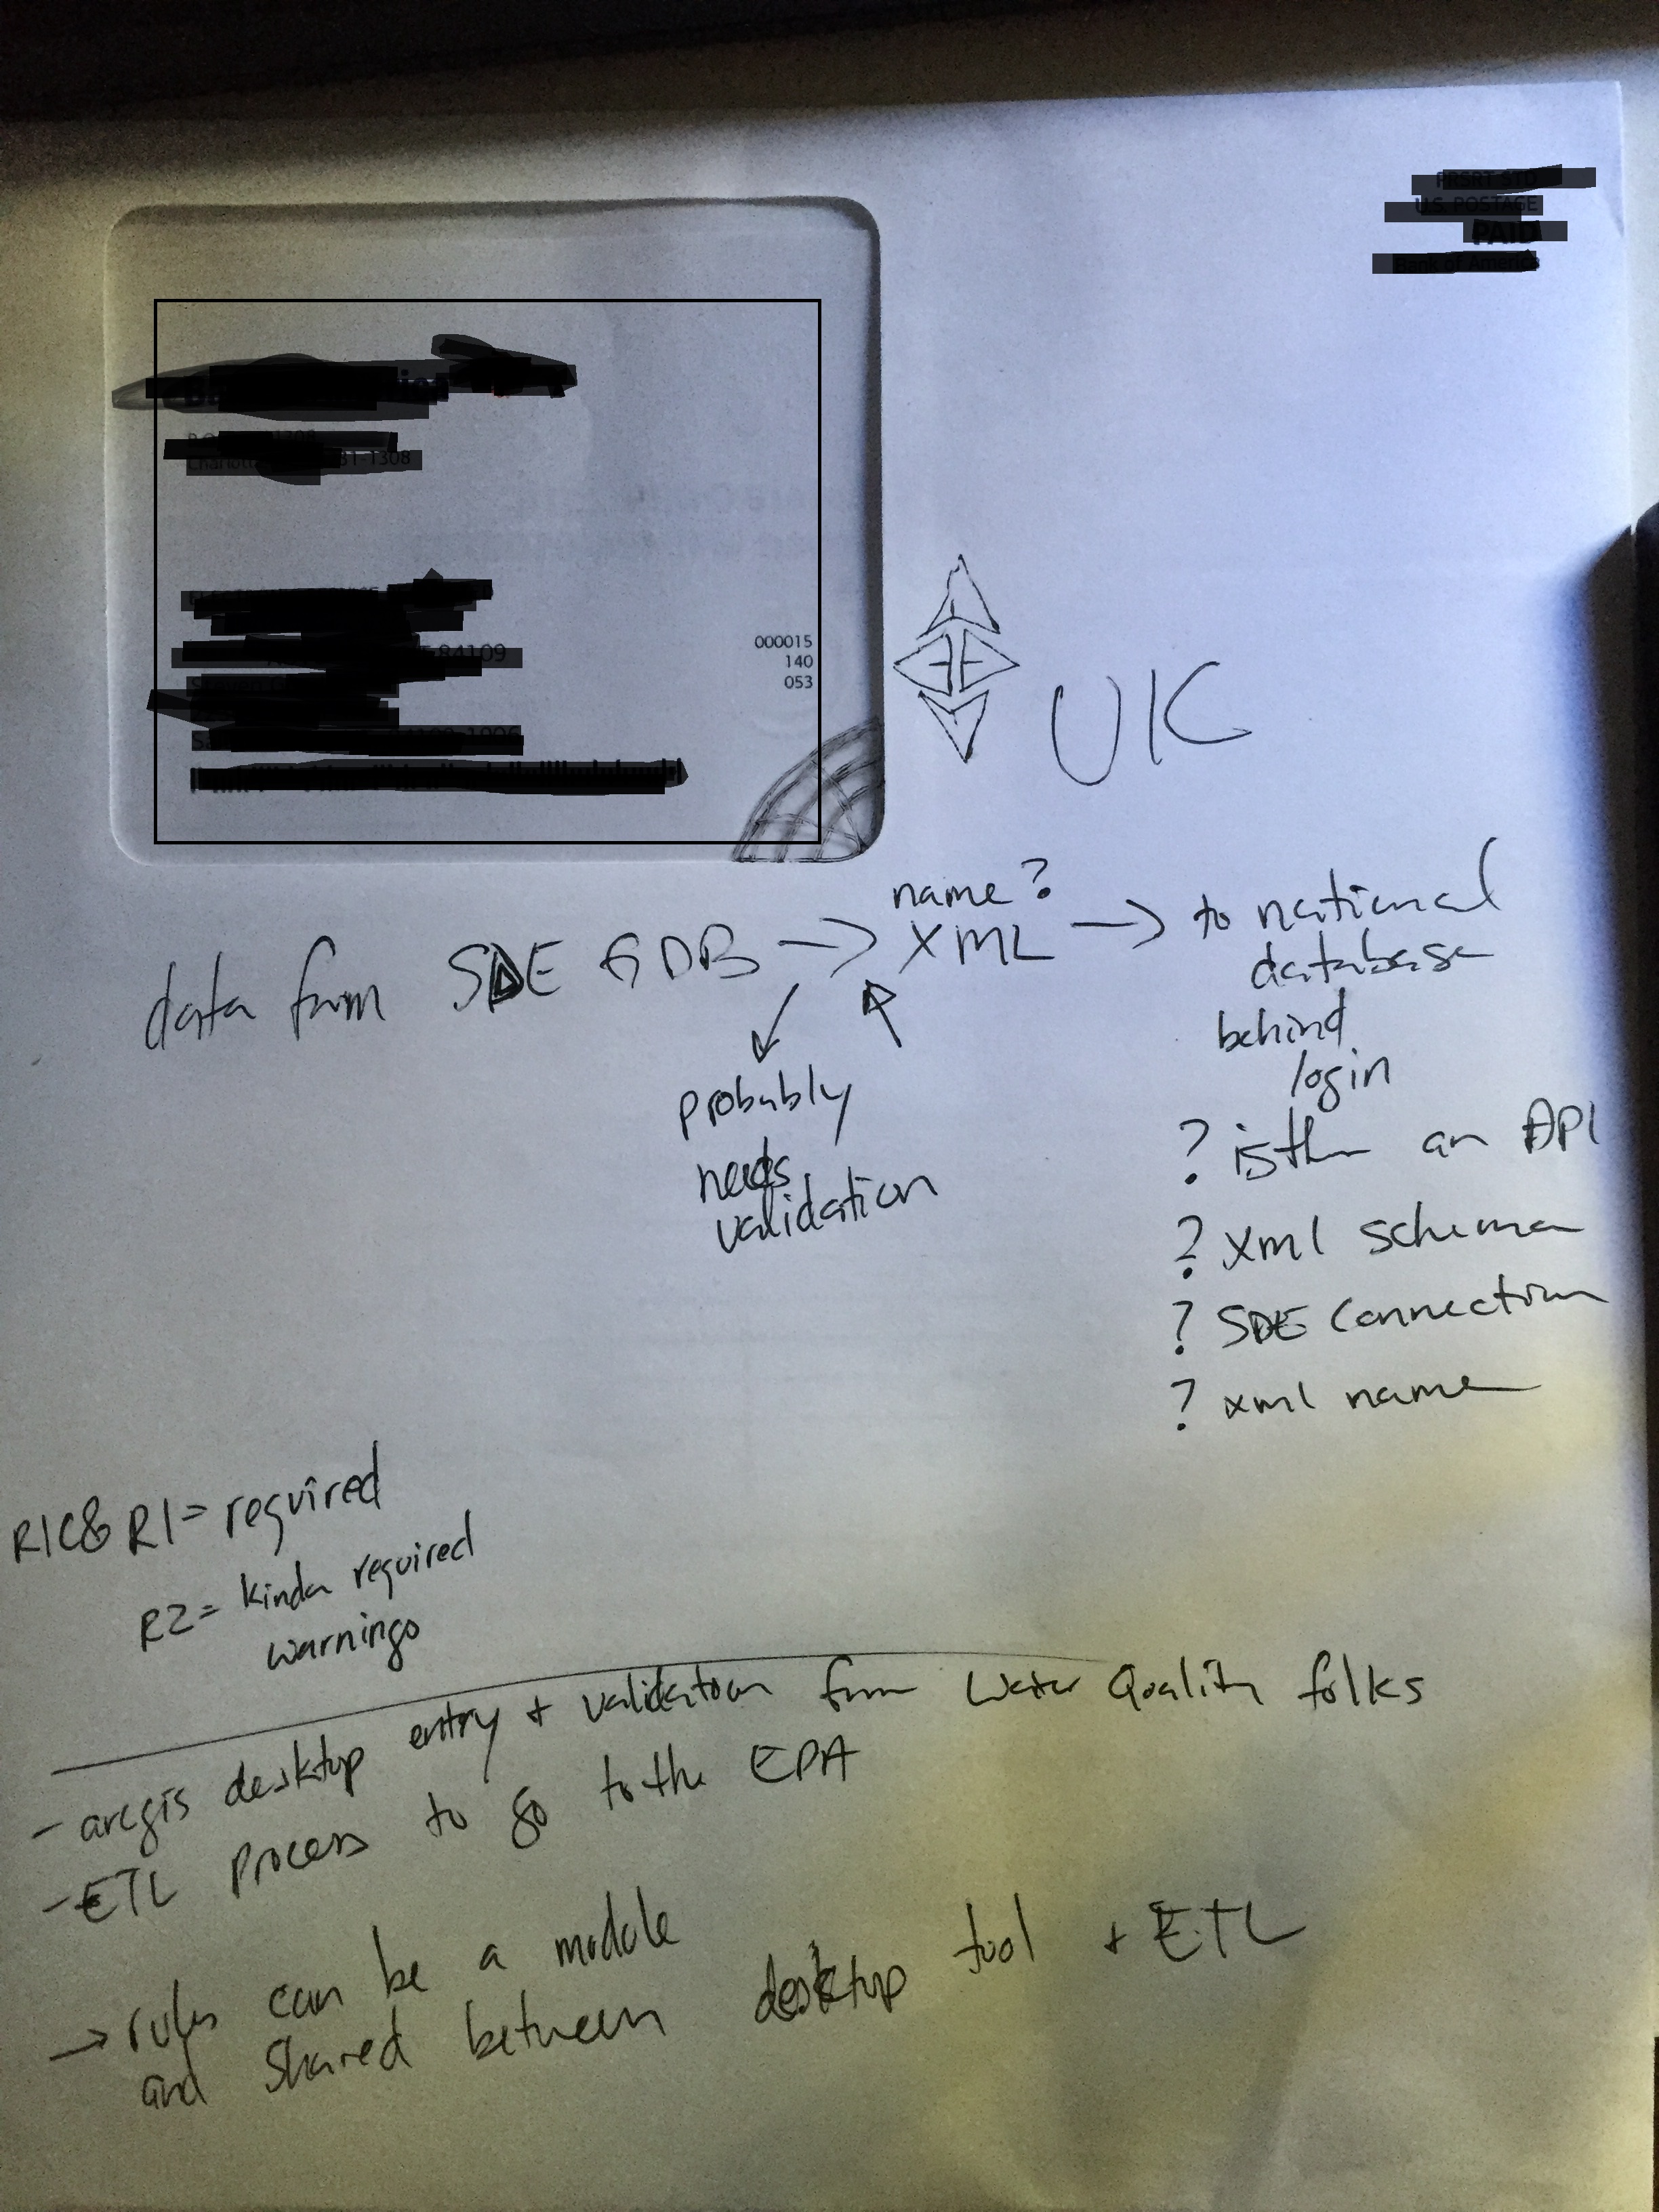 000015
140
053
UIC
name?
data from SDE GDB → XML → to national
database
behind
login
probably
needs
validation
? is there an API
? xml schema
? SDE Connection
? xml name
R1C & R1 = required
R2 = kinda required
warnings
- arcgis desktop entry + validation from Water Quality folks
- ETL process to go to the EPA
→ rules can be a module
and shared between desktop tool + ETL